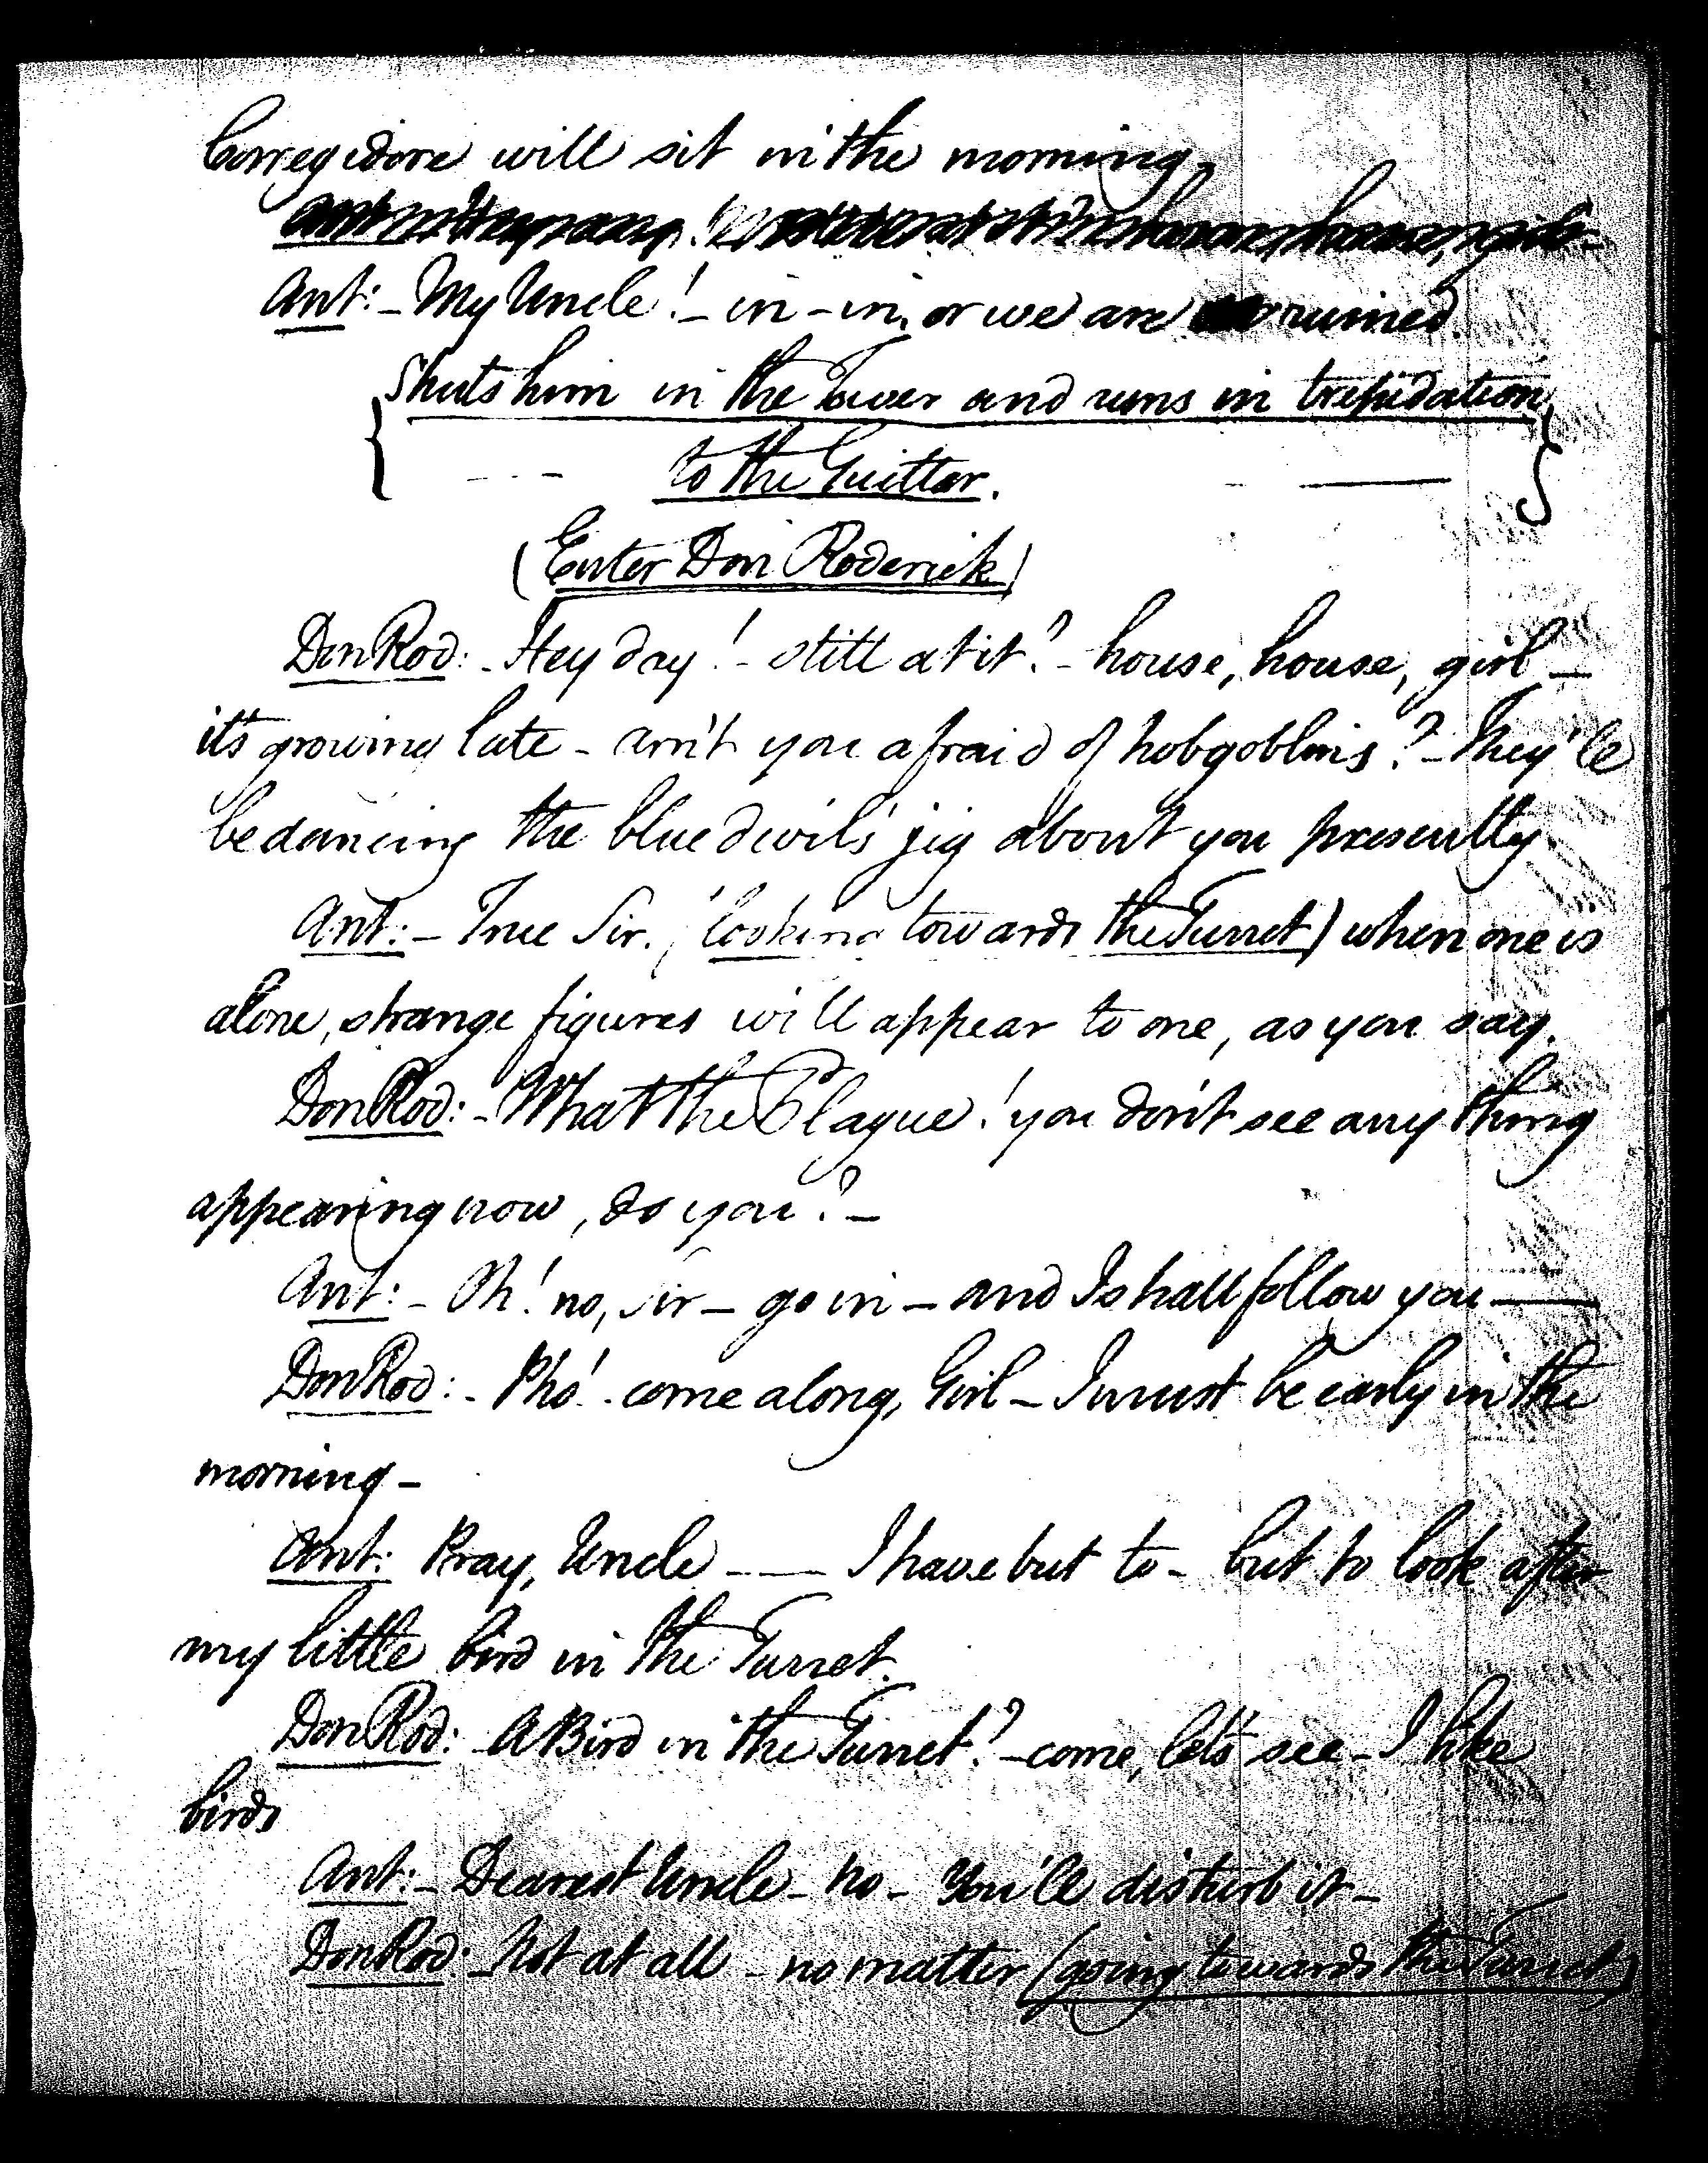 Corregidore will sit in the morning.
Ant: - My Uncle! - in - in, or we are ruined.
{Shuts him in the Tower and runs in trepidation
to the Guittar.}
(Enter Don Roderick)
Don Rod: - Hey day! - still at it? - house, house, girl -
it's growing late - arn't you afraid of hobgoblins? - They'll
be dancing the blue devils' jig about you presently.
Ant: - True Sir. (looking towards the Turret) when one is
alone, strange figures will appear to one, as you say.
Don Rod: - What the Plague! you don't see any thing
appearing now, do you? -
Ant: - Oh! no, Sir - go in - and I shall follow you -
Don Rod: - Pho! - come along, Girl - I must be early in the
morning -
Ant: Pray, Uncle - - - I have but to - but to look after
my little bird in the Turret.
Don Rod: - A Bird in the Turret? - come, let's see - I like
birds
Ant: - Dearest Uncle - no - You'll disturb it -
Don Rod: - Not at all - no matter (going towards the Turret)